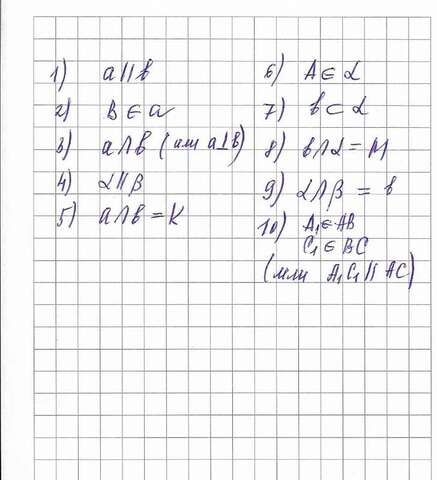 1) a∥b
2) B ∈ a
3) a∩b (или a⊥b)
4) α∥β
5) a∩b = K
6) A ∈ α
7) b ⊂ α
8) b∩α = M
9) α∩β = b
10) A₁ ∈ AB
C₁ ∈ BC
(или A₁C₁ ∥ AC)